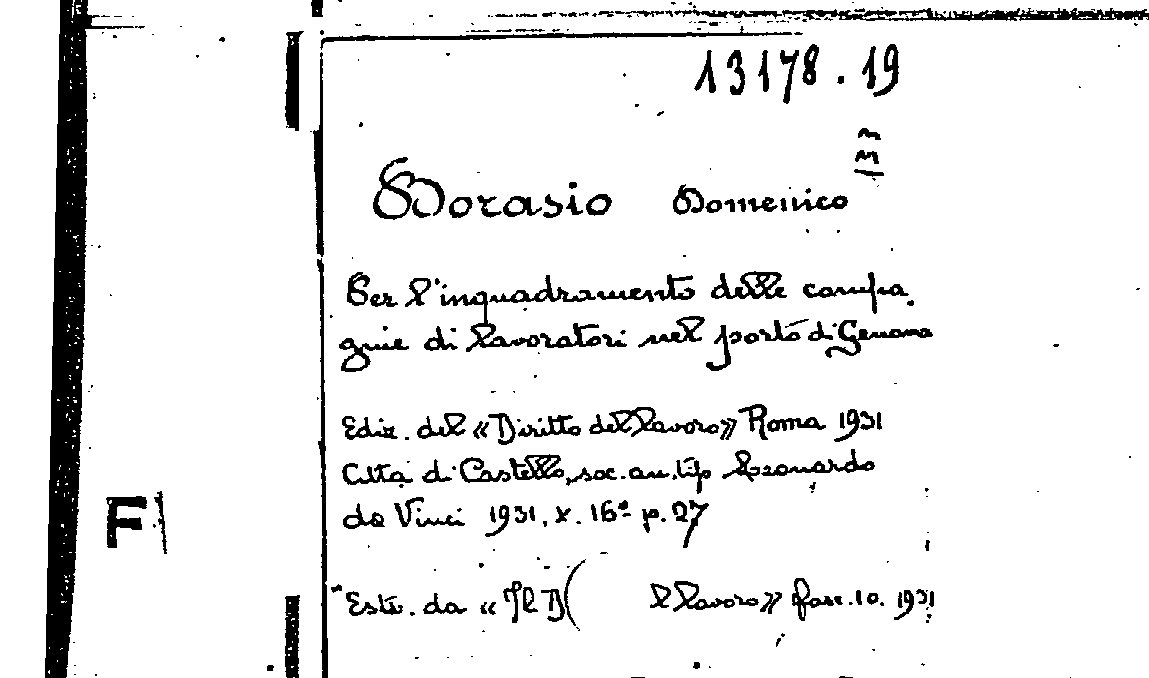 13178.19
Dorasio Domenico
Per l'inquadramento delle compa
gnie di lavoratori nel porto di Genova
Ediz. del «Diritto del lavoro» Roma 1931
Città di Castello, soc. an. tip. Leonardo
da Vinci 1931, x. 16° p. 27
F
Estr. da «Il D( l lavoro» fasc. 10. 1931